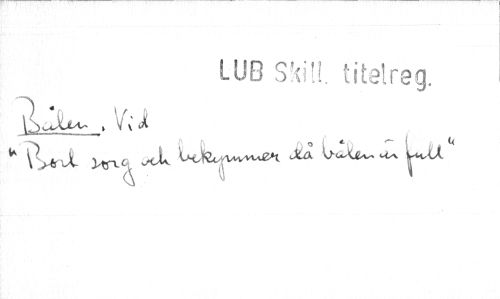 LUB Skill. titelreg.
Bålen. Vid
"Bort sorg och bekymmer då bålen är full"